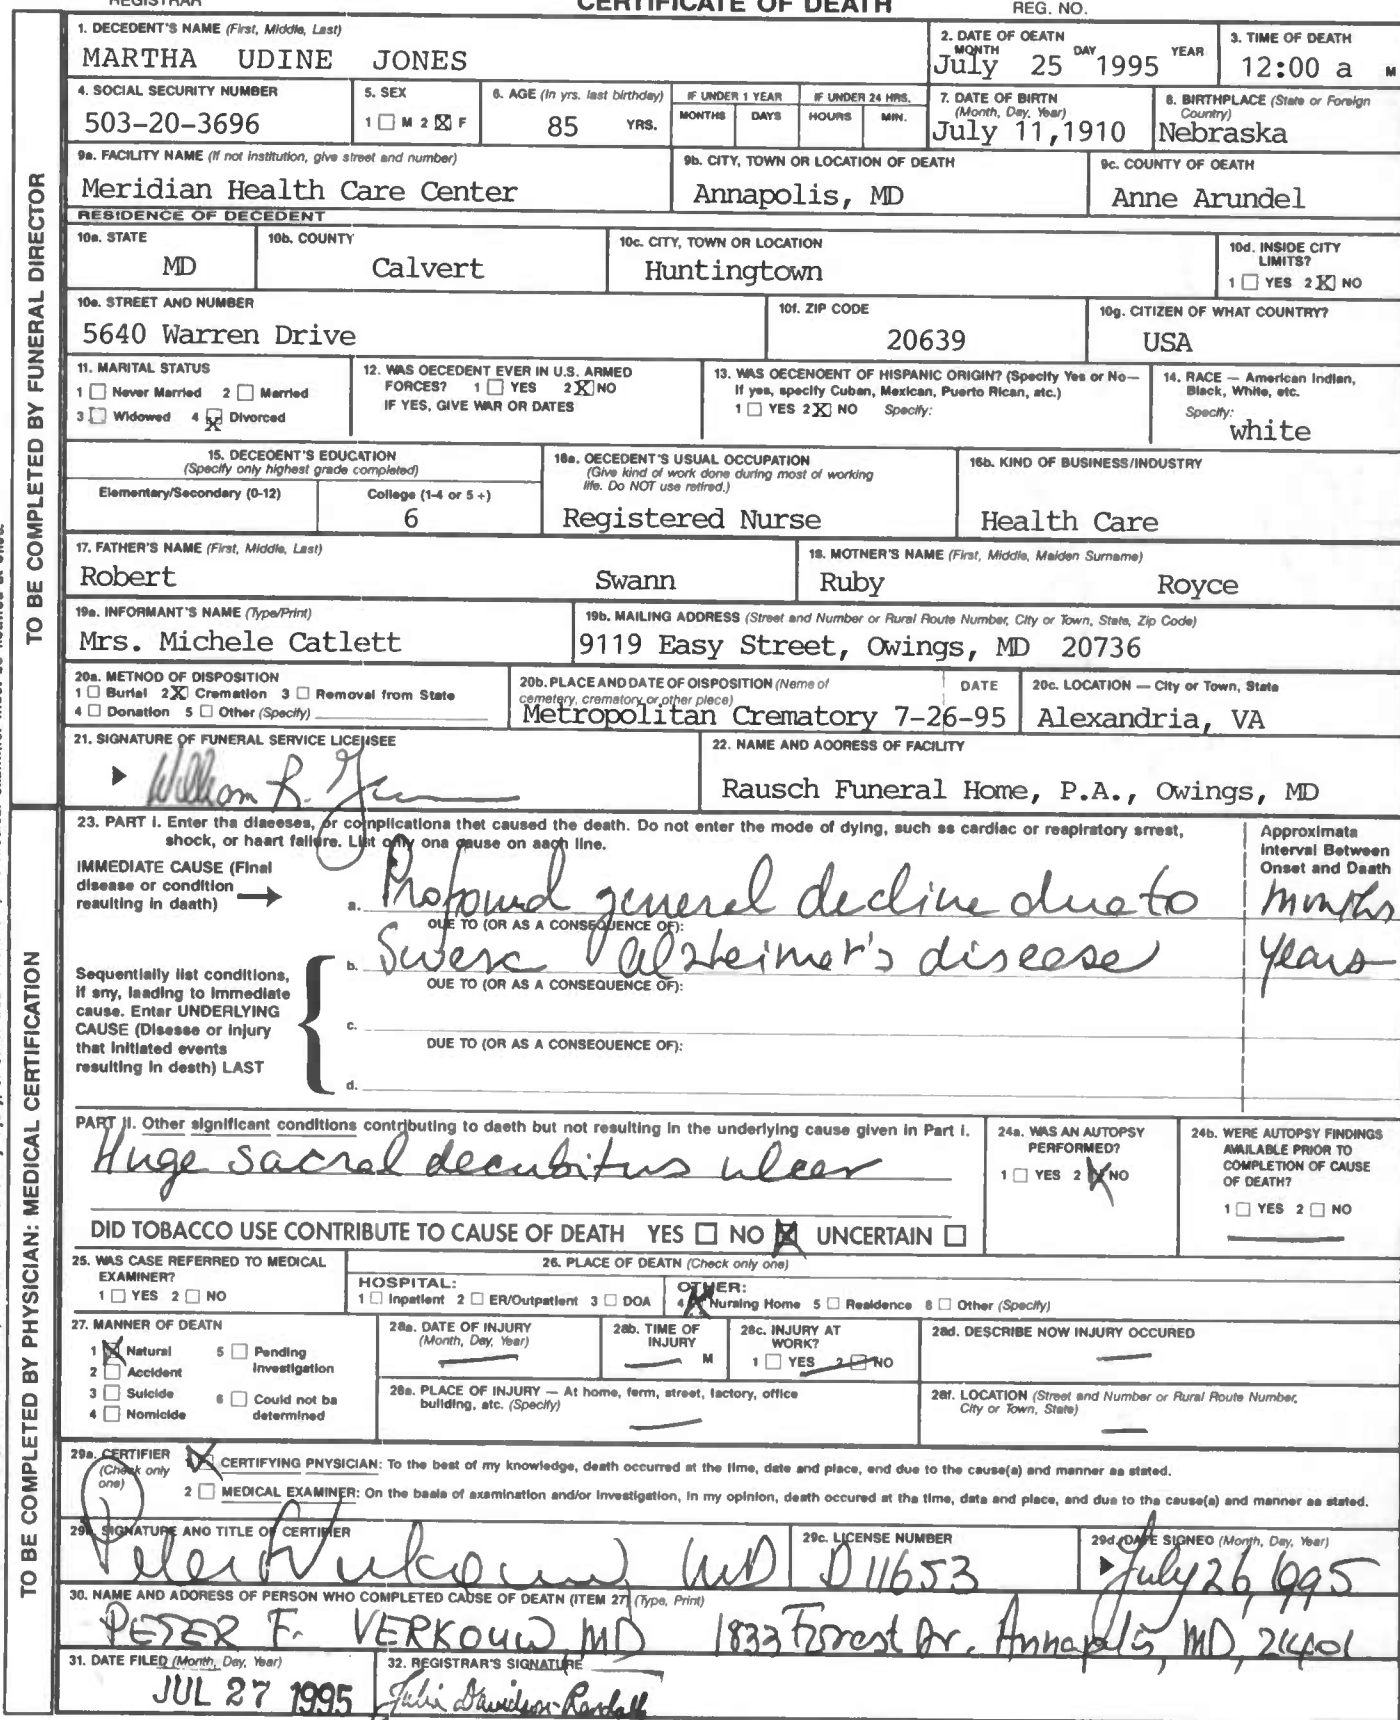 REGISTRAR CERTIFICATE OF DEATH REG. NO.
1. DECEDENT'S NAME (First, Middle, Last)
MARTHA UDINE JONES
2. DATE OF DEATH
MONTH DAY YEAR
July 25 1995
3. TIME OF DEATH
12:00 a M
4. SOCIAL SECURITY NUMBER
503-20-3696
5. SEX
1 ☐ M 2 ☒ F
6. AGE (In yrs. last birthday)
85 YRS.
IF UNDER 1 YEAR
MONTHS DAYS
IF UNDER 24 HRS.
HOURS MIN.
7. DATE OF BIRTH
(Month, Day, Year)
July 11,1910
8. BIRTHPLACE (State or Foreign
Country)
Nebraska
9a. FACILITY NAME (If not institution, give street and number)
Meridian Health Care Center
9b. CITY, TOWN OR LOCATION OF DEATH
Annapolis, MD
9c. COUNTY OF DEATH
Anne Arundel
RESIDENCE OF DECEDENT
10a. STATE
MD
10b. COUNTY
Calvert
10c. CITY, TOWN OR LOCATION
Huntingtown
10d. INSIDE CITY
LIMITS?
1 ☐ YES 2 ☒ NO
10e. STREET AND NUMBER
5640 Warren Drive
10f. ZIP CODE
20639
10g. CITIZEN OF WHAT COUNTRY?
USA
11. MARITAL STATUS
1 ☐ Never Married 2 ☐ Married
3 ☐ Widowed 4 ☒ Divorced
12. WAS DECEDENT EVER IN U.S. ARMED
FORCES? 1 ☐ YES 2 ☒ NO
IF YES, GIVE WAR OR DATES
13. WAS DECENDENT OF HISPANIC ORIGIN? (Specify Yes or No—
If yes, specify Cuban, Mexican, Puerto Rican, etc.)
1 ☐ YES 2 ☒ NO Specify:
14. RACE — American Indian,
Black, White, etc.
Specify:
white
15. DECEDENT'S EDUCATION
(Specify only highest grade completed)
Elementary/Secondary (0-12)
College (1-4 or 5+)
6
16a. DECEDENT'S USUAL OCCUPATION
(Give kind of work done during most of working
life. Do NOT use retired.)
Registered Nurse
16b. KIND OF BUSINESS/INDUSTRY
Health Care
17. FATHER'S NAME (First, Middle, Last)
Robert Swann
18. MOTHER'S NAME (First, Middle, Maiden Surname)
Ruby Royce
19a. INFORMANT'S NAME (Type/Print)
Mrs. Michele Catlett
19b. MAILING ADDRESS (Street and Number or Rural Route Number, City or Town, State, Zip Code)
9119 Easy Street, Owings, MD 20736
20a. METHOD OF DISPOSITION
1 ☐ Burial 2 ☒ Cremation 3 ☐ Removal from State
4 ☐ Donation 5 ☐ Other (Specify)
20b. PLACE AND DATE OF DISPOSITION (Name of
cemetery, crematory or other place)
DATE
Metropolitan Crematory 7-26-95
20c. LOCATION — City or Town, State
Alexandria, VA
21. SIGNATURE OF FUNERAL SERVICE LICENSEE
William R.
22. NAME AND ADDRESS OF FACILITY
Rausch Funeral Home, P.A., Owings, MD
TO BE COMPLETED BY FUNERAL DIRECTOR
23. PART I. Enter the diseases, or complications that caused the death. Do not enter the mode of dying, such as cardiac or respiratory arrest,
shock, or heart failure. List only one cause on each line.
Approximate
Interval Between
Onset and Death
IMMEDIATE CAUSE (Final
disease or condition
resulting in death)
a. Profound general decline due to months
DUE TO (OR AS A CONSEQUENCE OF):
b. Severe Alzheimer's disease years
DUE TO (OR AS A CONSEQUENCE OF):
Sequentially list conditions,
if any, leading to immediate
cause. Enter UNDERLYING
CAUSE (Disease or injury
that initiated events
resulting in death) LAST
c.
DUE TO (OR AS A CONSEQUENCE OF):
d.
PART II. Other significant conditions contributing to death but not resulting in the underlying cause given in Part I.
Huge sacral decubitus ulcer
24a. WAS AN AUTOPSY
PERFORMED?
1 ☐ YES 2 ☒ NO
24b. WERE AUTOPSY FINDINGS
AVAILABLE PRIOR TO
COMPLETION OF CAUSE
OF DEATH?
1 ☐ YES 2 ☐ NO
DID TOBACCO USE CONTRIBUTE TO CAUSE OF DEATH YES ☐ NO ☒ UNCERTAIN ☐
25. WAS CASE REFERRED TO MEDICAL
EXAMINER?
1 ☐ YES 2 ☐ NO
26. PLACE OF DEATH (Check only one)
HOSPITAL:
1 ☐ Inpatient 2 ☐ ER/Outpatient 3 ☐ DOA
OTHER:
4 ☒ Nursing Home 5 ☐ Residence 6 ☐ Other (Specify)
27. MANNER OF DEATH
1 ☒ Natural 5 ☐ Pending
Investigation
2 ☐ Accident
3 ☐ Suicide 6 ☐ Could not be
determined
4 ☐ Homicide
28a. DATE OF INJURY
(Month, Day, Year)
28b. TIME OF
INJURY
M
28c. INJURY AT
WORK?
1 ☐ YES 2 ☐ NO
28d. DESCRIBE HOW INJURY OCCURED
28e. PLACE OF INJURY — At home, farm, street, factory, office
building, etc. (Specify)
28f. LOCATION (Street and Number or Rural Route Number,
City or Town, State)
29a. CERTIFIER
(Check only
one)
1 ☒ CERTIFYING PHYSICIAN: To the best of my knowledge, death occurred at the time, date and place, and due to the cause(s) and manner as stated.
2 ☐ MEDICAL EXAMINER: On the basis of examination and/or investigation, in my opinion, death occured at the time, data and place, and due to the cause(s) and manner as stated.
29b. SIGNATURE AND TITLE OF CERTIFIER
Peter Verkouw, MD
29c. LICENSE NUMBER
D11653
29d. DATE SIGNED (Month, Day, Year)
July 26, 1995
30. NAME AND ADDRESS OF PERSON WHO COMPLETED CAUSE OF DEATH (ITEM 27) (Type, Print)
PETER F. VERKOUW, MD 1833 Forest Dr. Annapolis, MD, 21401
31. DATE FILED (Month, Day, Year)
JUL 27 1995
32. REGISTRAR'S SIGNATURE
Julia Davidson-Randall
TO BE COMPLETED BY PHYSICIAN: MEDICAL CERTIFICATION